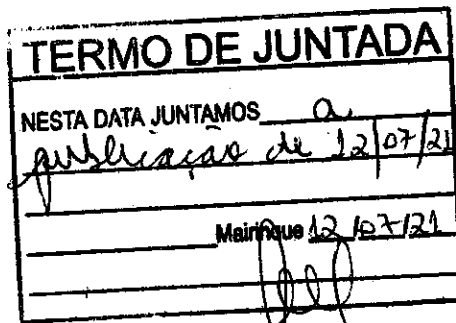 TERMO DE JUNTADA
NESTA DATA JUNTAMOS a
publicação de 12/07/21
Mairinque 12/07/21